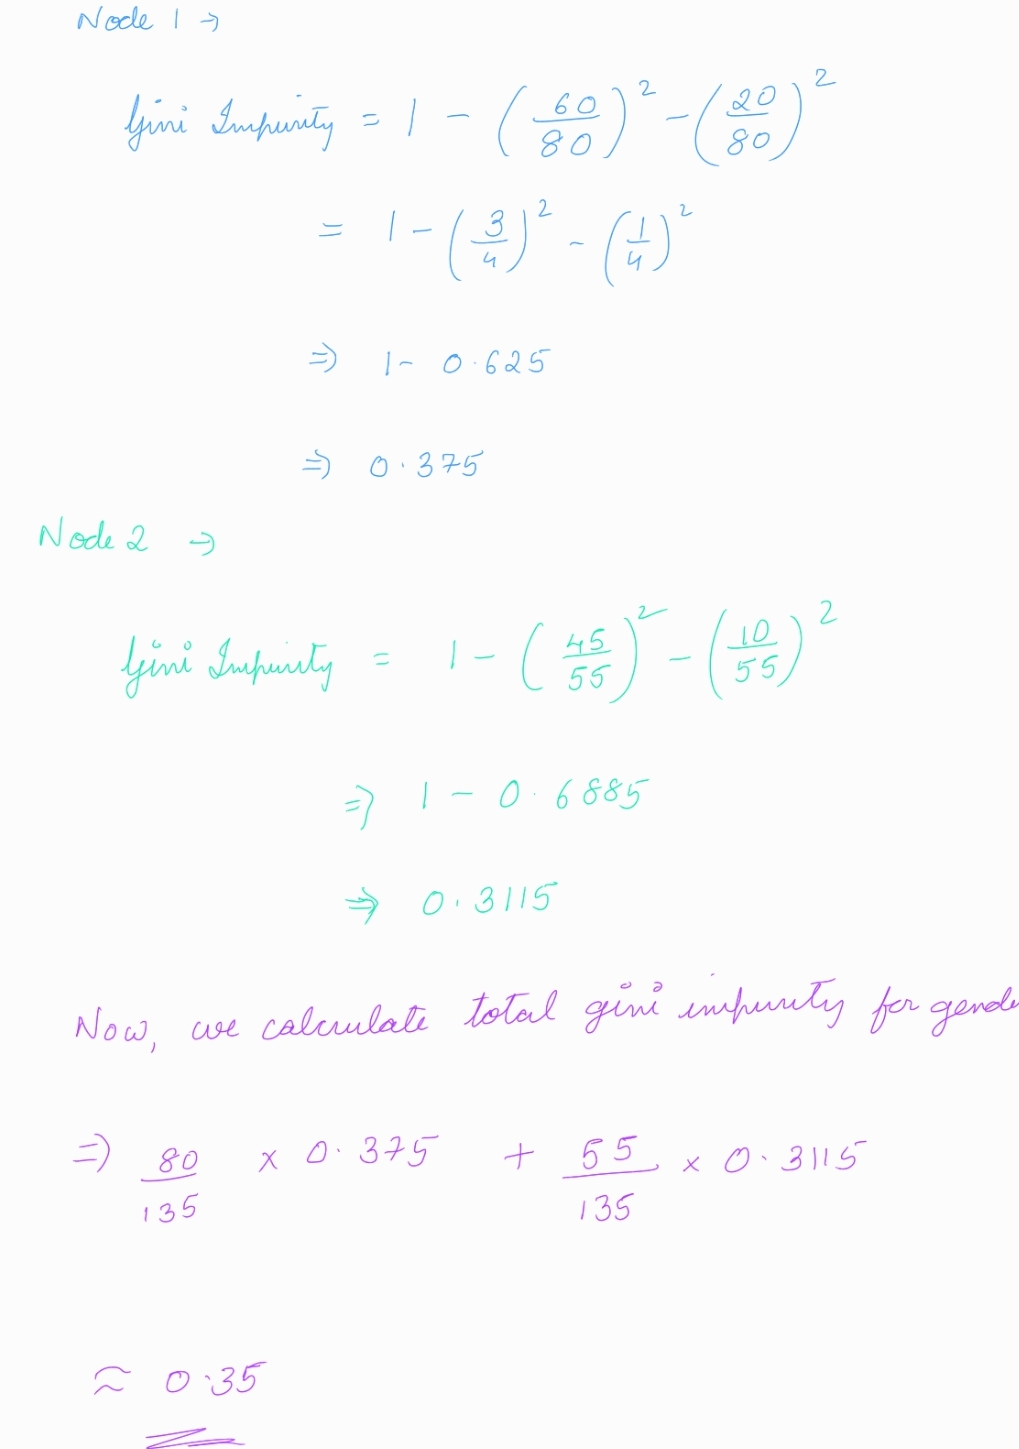 Node 1 →
Gini Impurity = 1 - (60/80)² - (20/80)²
= 1 - (3/4)² - (1/4)²
⇒ 1 - 0.625
⇒ 0.375
Node 2 →
Gini Impurity = 1 - (45/55)² - (10/55)²
⇒ 1 - 0.6885
⇒ 0.3115
Now, we calculate total gini impurity for gende
⇒ 80/135 × 0.375 + 55/135 × 0.3115
≈ 0.35